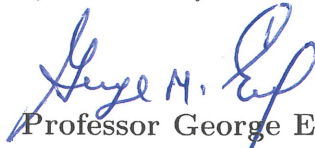 George M.
Professor George E